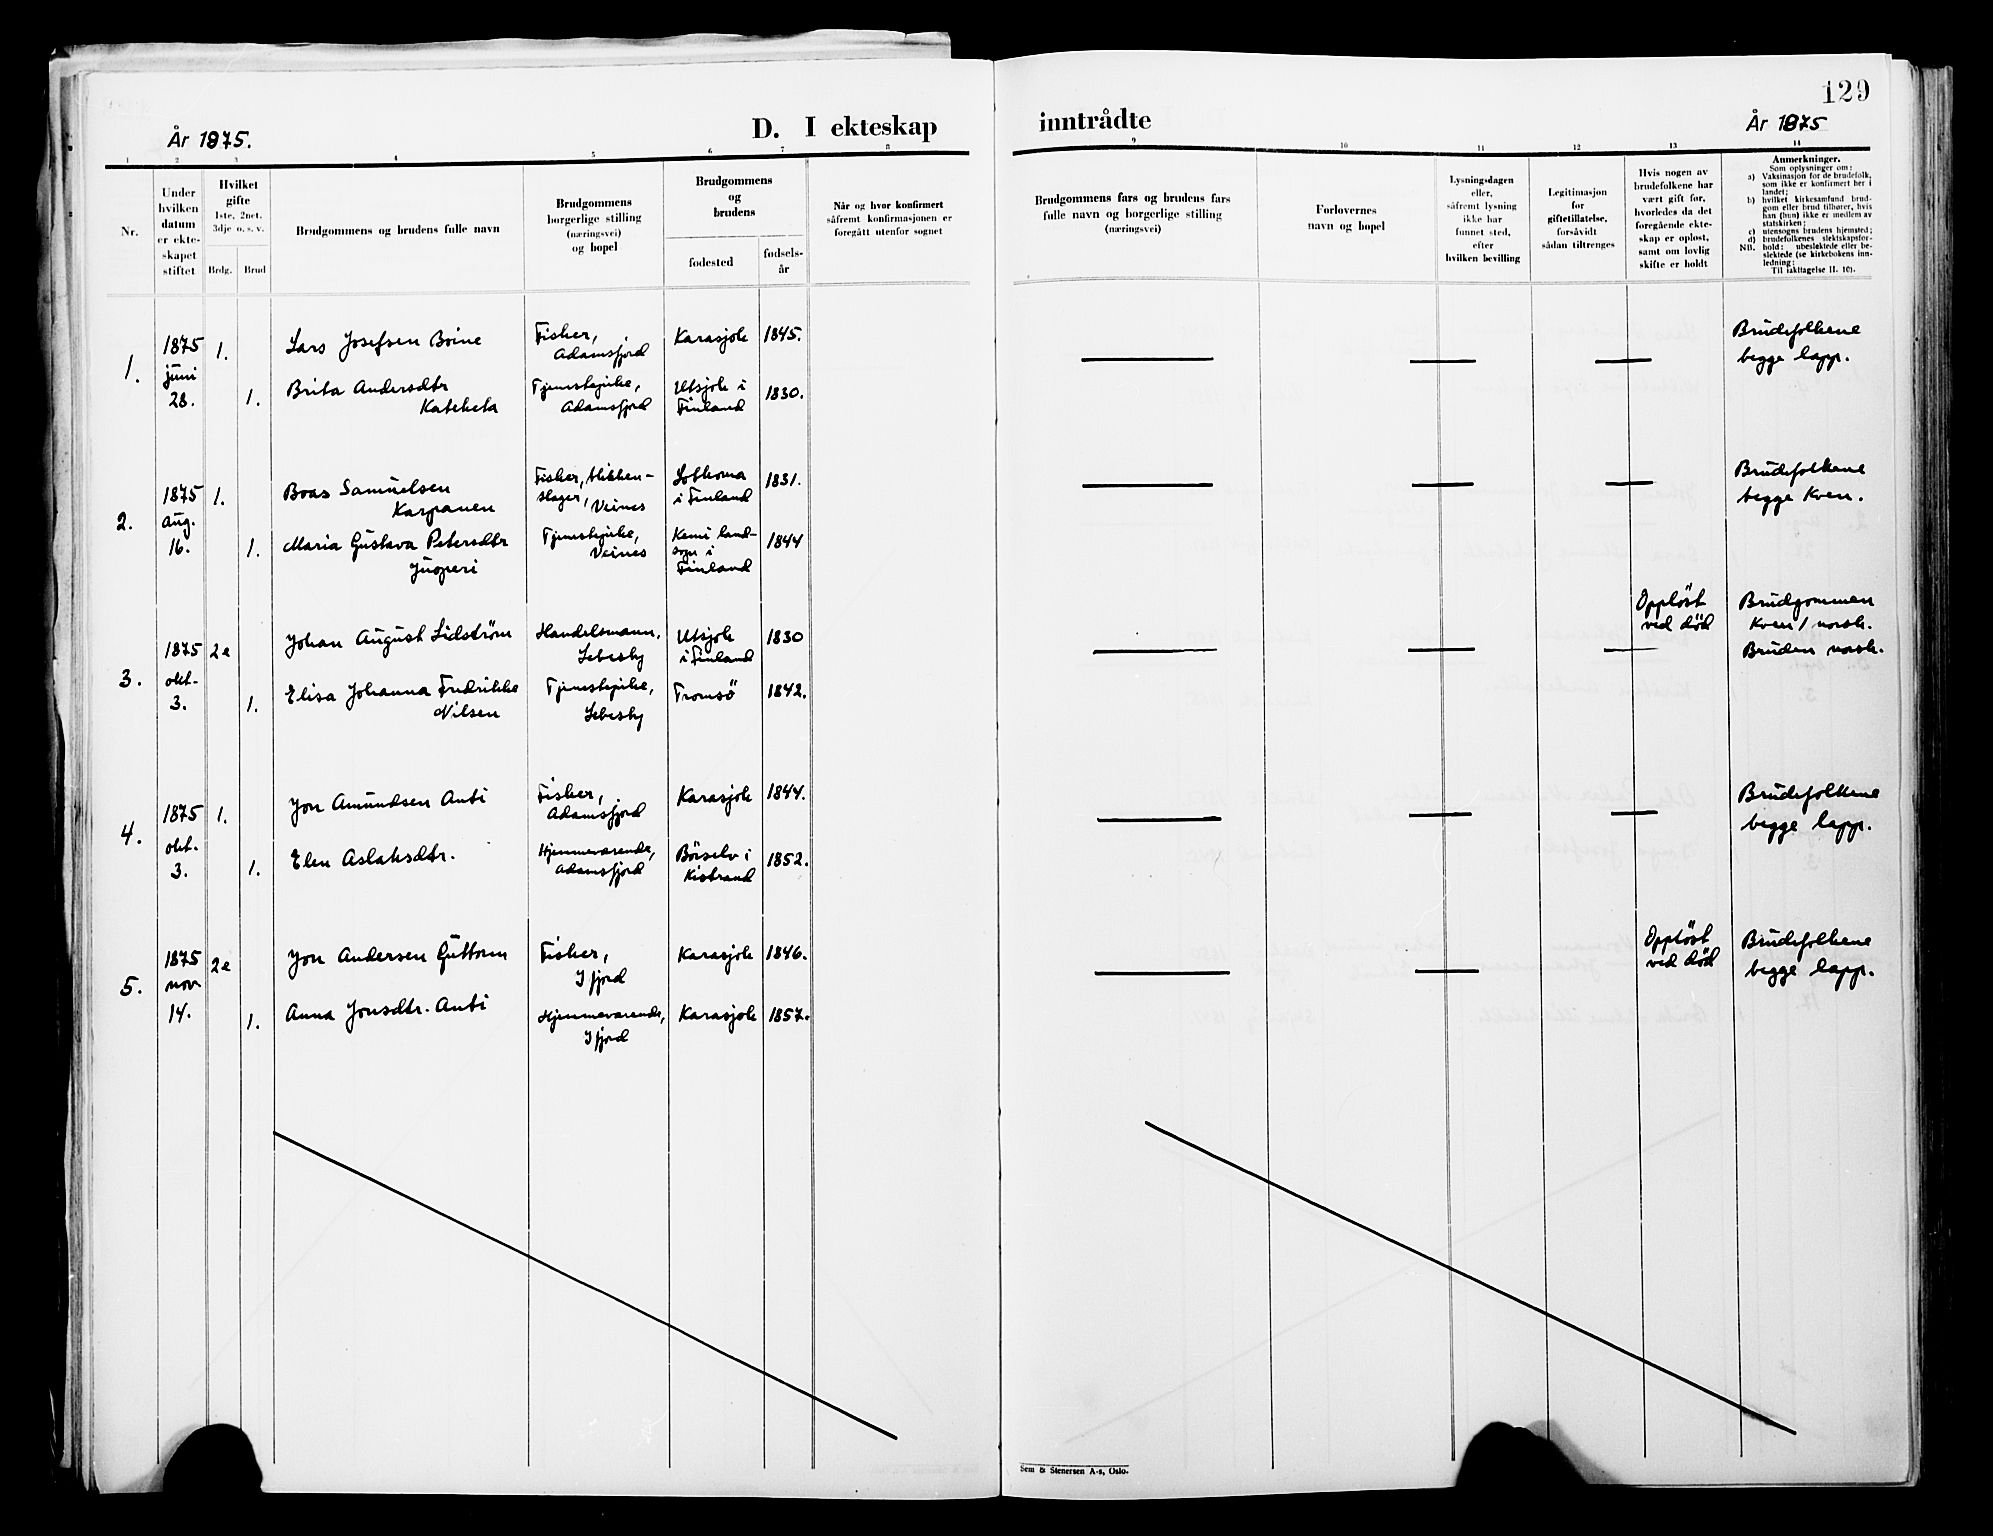 129
År 1875.
D. I ekteskap
inntrådte
År 1875
1 2 3 4 5 6 7 8 9 10 11 12 13 14
Nr.
Under
hvilken
datum
er ekte-
skapet
stiftet
Hvilket
gifte
1ste, 2net.
3dje o. s. v.
Brdg.
Brud
Brudgommens og brudens fulle navn
Brudgommens
borgerlige stilling
(næringsvei)
og bopel
Brudgommens
og
brudens
fødested
fødsels-
år
Når og hvor konfirmert
såfremt konfirmasjonen er
foregått utenfor sognet
Brudgommens fars og brudens fars
fulle navn og borgerlige stilling
(næringsvei)
Forlovernes
navn og bopel
Lysningsdagen
eller,
såfremt lysning
ikke har
funnet sted,
efter
hvilken bevilling
Legitimasjon
for
giftetillatelse,
forsåvidt
sådan tiltrenges
Hvis nogen av
brudefolkene har
vært gift før,
hvorledes da det
foregående ekte-
skap er opløst,
samt om lovlig
skifte er holdt
Anmerkninger.
Som oplysninger om:
a) Vaksinasjon for de brudefolk,
som ikke er konfirmert her i
landet;
b) hvilket kirkesamfund brud-
gom eller brud tilhører, hvis
han (hun) ikke er medlem av
statskirken;
c) utensogns brudens hjemsted;
d) brudefolkenes slektskapsfor-
hold: ubeslektede eller be-
NB. slektede (se kirkebokens inn-
ledning:
Til iakttagelse II. 10).
1.
1875
juni
28.
1.
Lars Josefsen Boine
Fisker,
Adamsfjord
Karasjok
1845.
1.
Brita Andersdtr
Kateketa
Tjenestepike,
Adamsfjord
Utsjok i
Finland
1830.
Brudefolkene
begge lapp.
2.
1875
aug.
16.
1.
Boas Samuelsen
Karpanen
Fisker, klikken-
slager,
Veines
i Finland
1831.
1.
Maria Gustava Petersdtr
Juoperi
Tjenestepike,
Veines
Kemi land-
sogn i
Finland
1844
Brudefolkene
begge Kven.
3.
1875
okt.
3.
2e
Johan August Lidström
Handelsmann,
Lebesby
Utsjok
i Finland
1830
1.
Elisa Johanna Fredrikke
Nilsen
Tjenestepike,
Lebesby
Tromsö
1842.
Oppløst
ved død
Brudgommen
Kven / norsk.
Bruden norsk.
4.
1875
okt.
3.
1.
Jon Amundsen Anti
Fisker,
Adamsfjord
Karasjok
1844.
1.
Elen Aslaksdtr.
Hjemmeværende,
Adamsfjord
Börselv i
Kistrand
1852.
Brudefolkene
begge lapp.
5.
1875
nov
14.
2e
Jon Andersen Guttorm
Fisker,
Ifjord
Karasjok
1846.
1.
Anna Jonsdtr. Anti
Hjemmeværende,
Ifjord
Karasjok
1857.
Oppløst
ved død
Brudefolkene
begge lapp.
Sem & Stenersen A-s, Oslo.